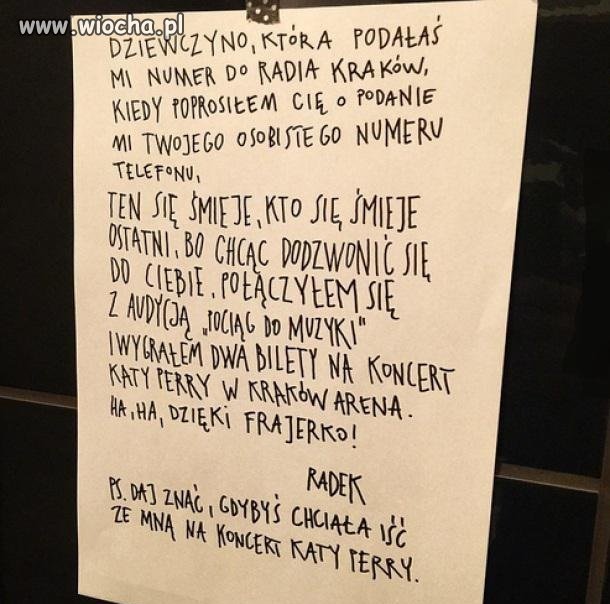 www.wiocha.pl
DZIEWCZYNO, KTÓRA PODAŁAŚ
MI NUMER DO RADIA KRAKÓW,
KIEDY POPROSIŁEM CIĘ O PODANIE
MI TWOJEGO OSOBISTEGO NUMERU
TELEFONU,
TEN SIĘ ŚMIEJE, KTO SIĘ ŚMIEJE
OSTATNI, BO CHCĄC DODZWONIĆ SIĘ
DO CIEBIE, POŁĄCZYŁEM SIĘ
Z AUDYCJĄ „POCIĄG DO MUZYKI"
I WYGRAŁEM DWA BILETY NA KONCERT
KATY PERRY W KRAKÓW ARENA.
HA, HA, DZIĘKI FRAJERKO!
RADEK
PS. DAJ ZNAĆ, GDYBYŚ CHCIAŁA IŚĆ
ZE MNĄ NA KONCERT KATY PERRY.